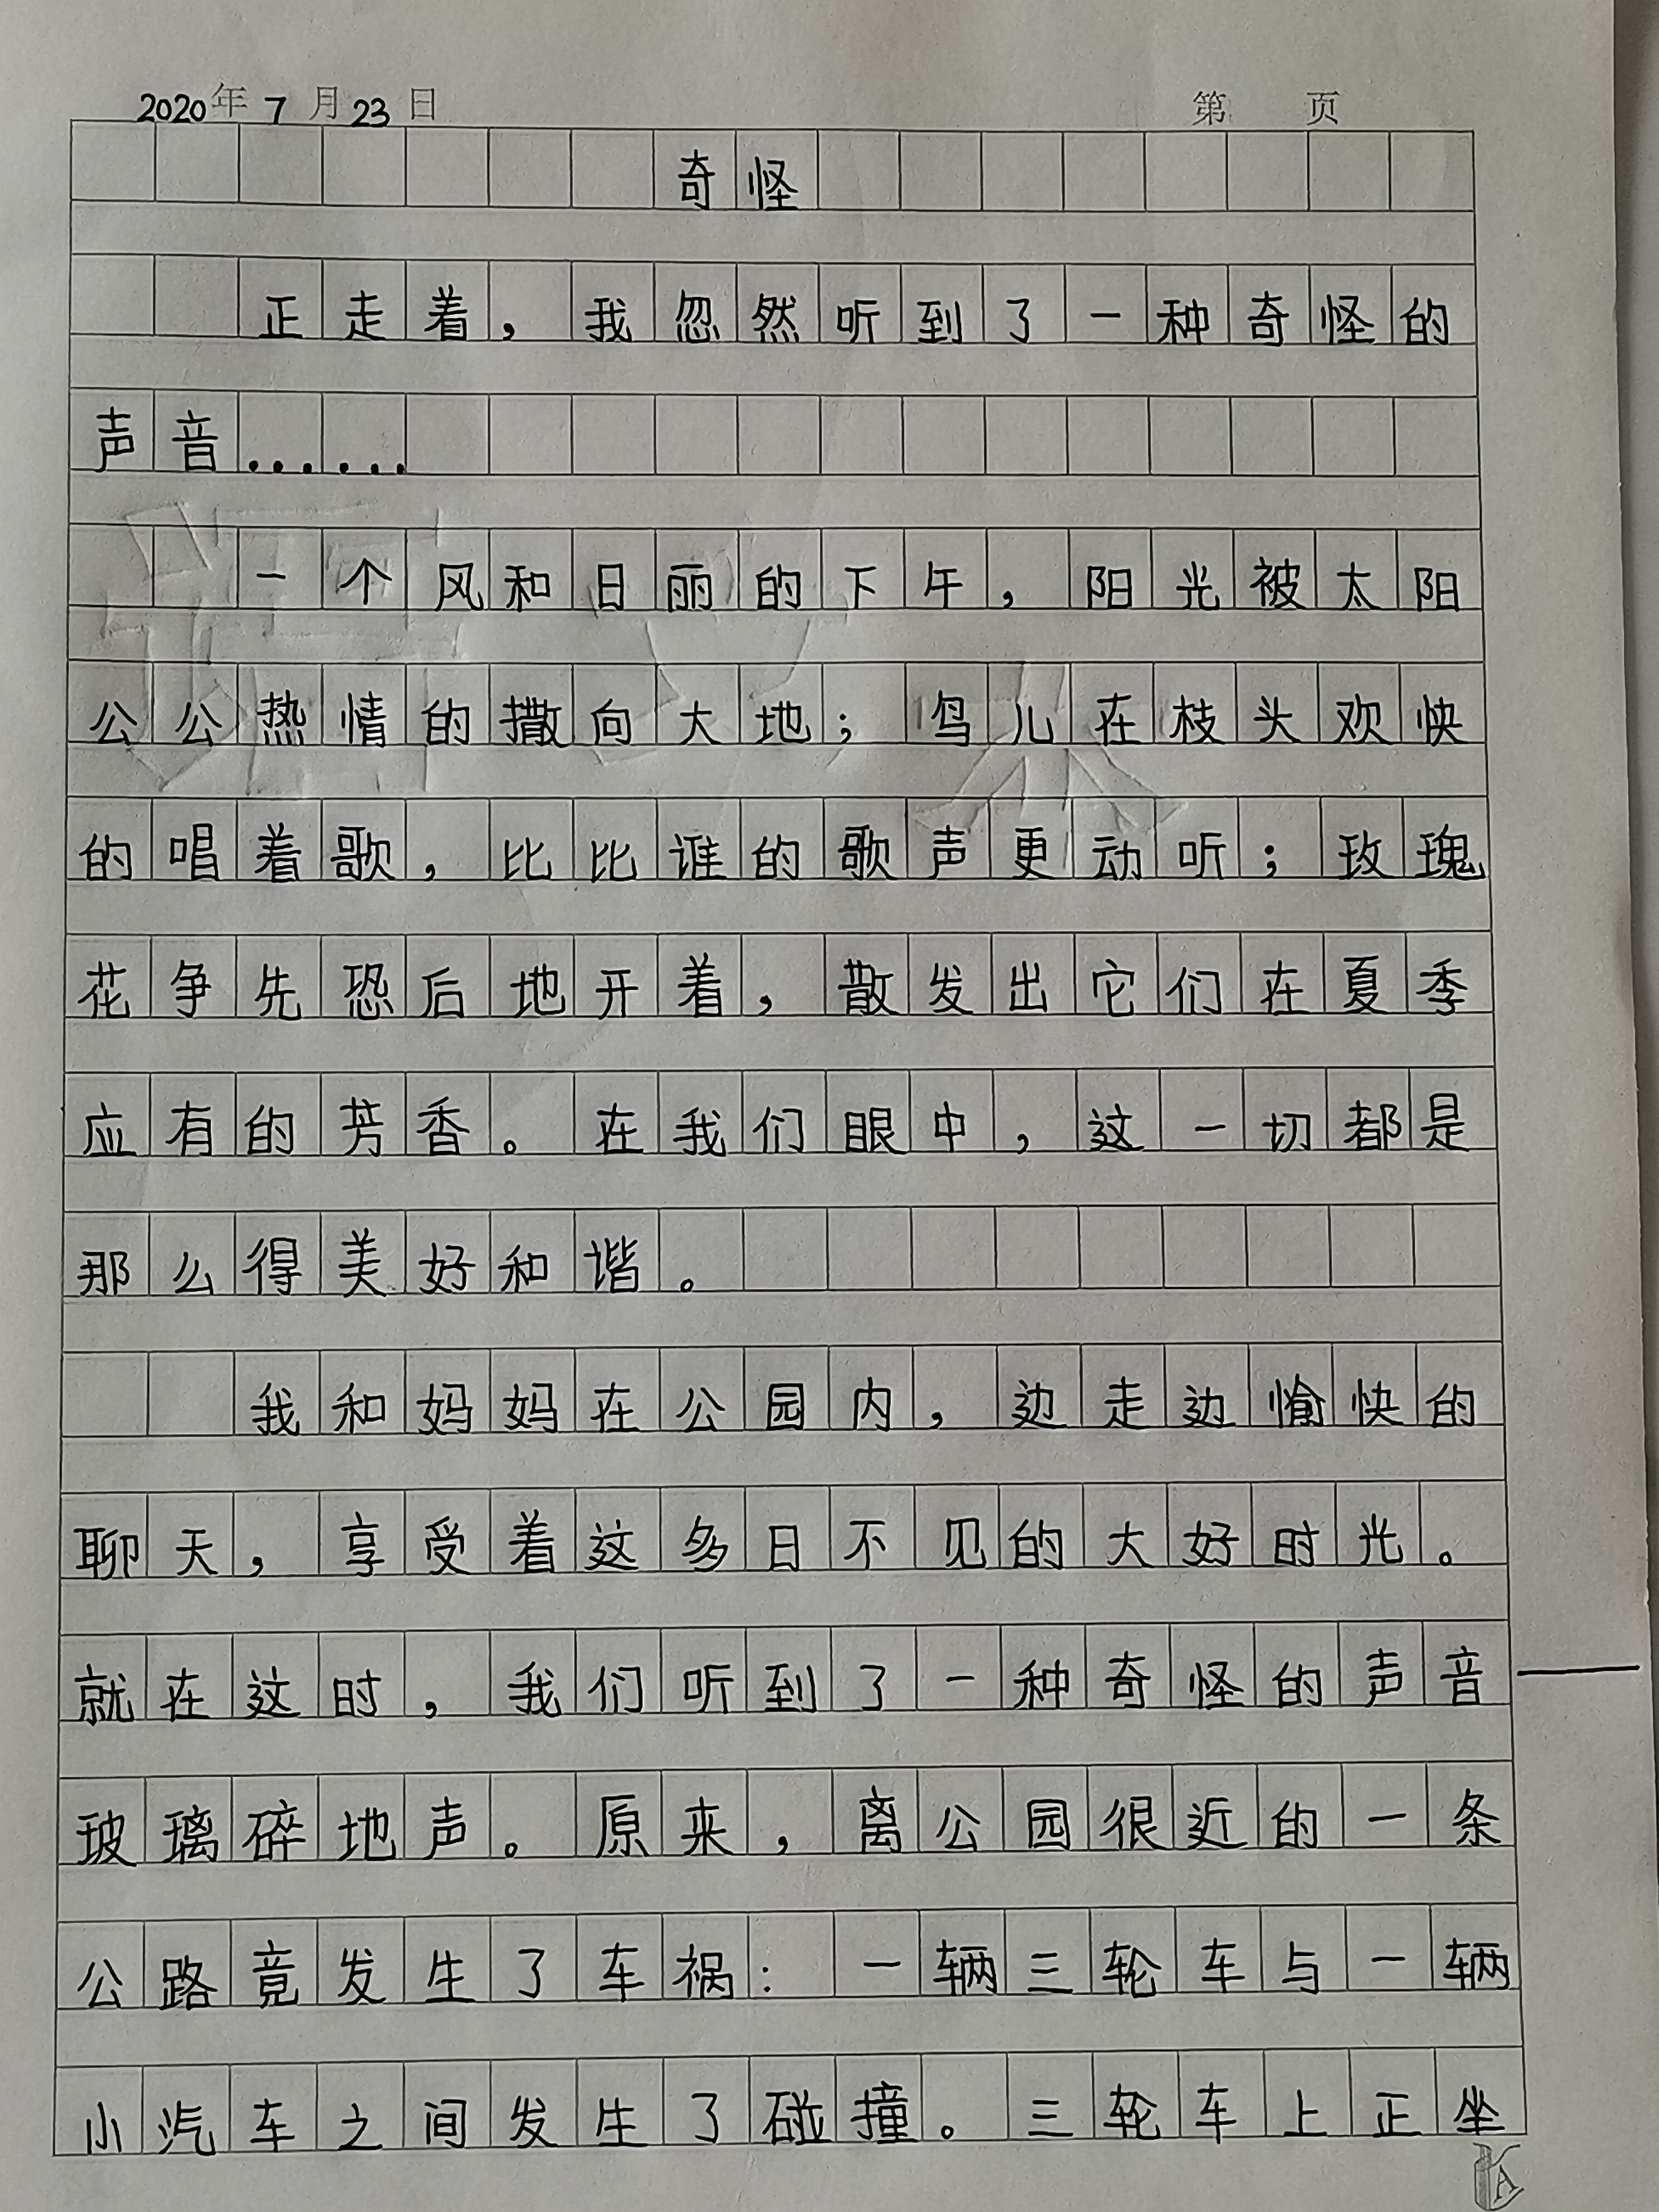 2020年7月23日 第 页
奇怪
正走着，我忽然听到了一种奇怪的
声音……
一个风和日丽的下午，阳光被太阳
公公热情的撒向大地；鸟儿在枝头欢快
的唱着歌，比比谁的歌声更动听；玫瑰
花争先恐后地开着，散发出它们在夏季
应有的芳香。在我们眼中，这一切都是
那么得美好和谐。
我和妈妈在公园内，边走边愉快的
聊天，享受着这多日不见的大好时光。
就在这时，我们听到了一种奇怪的声音——
玻璃碎地声。原来，离公园很近的一条
公路竟发生了车祸：一辆三轮车与一辆
小汽车之间发生了碰撞。三轮车上正坐